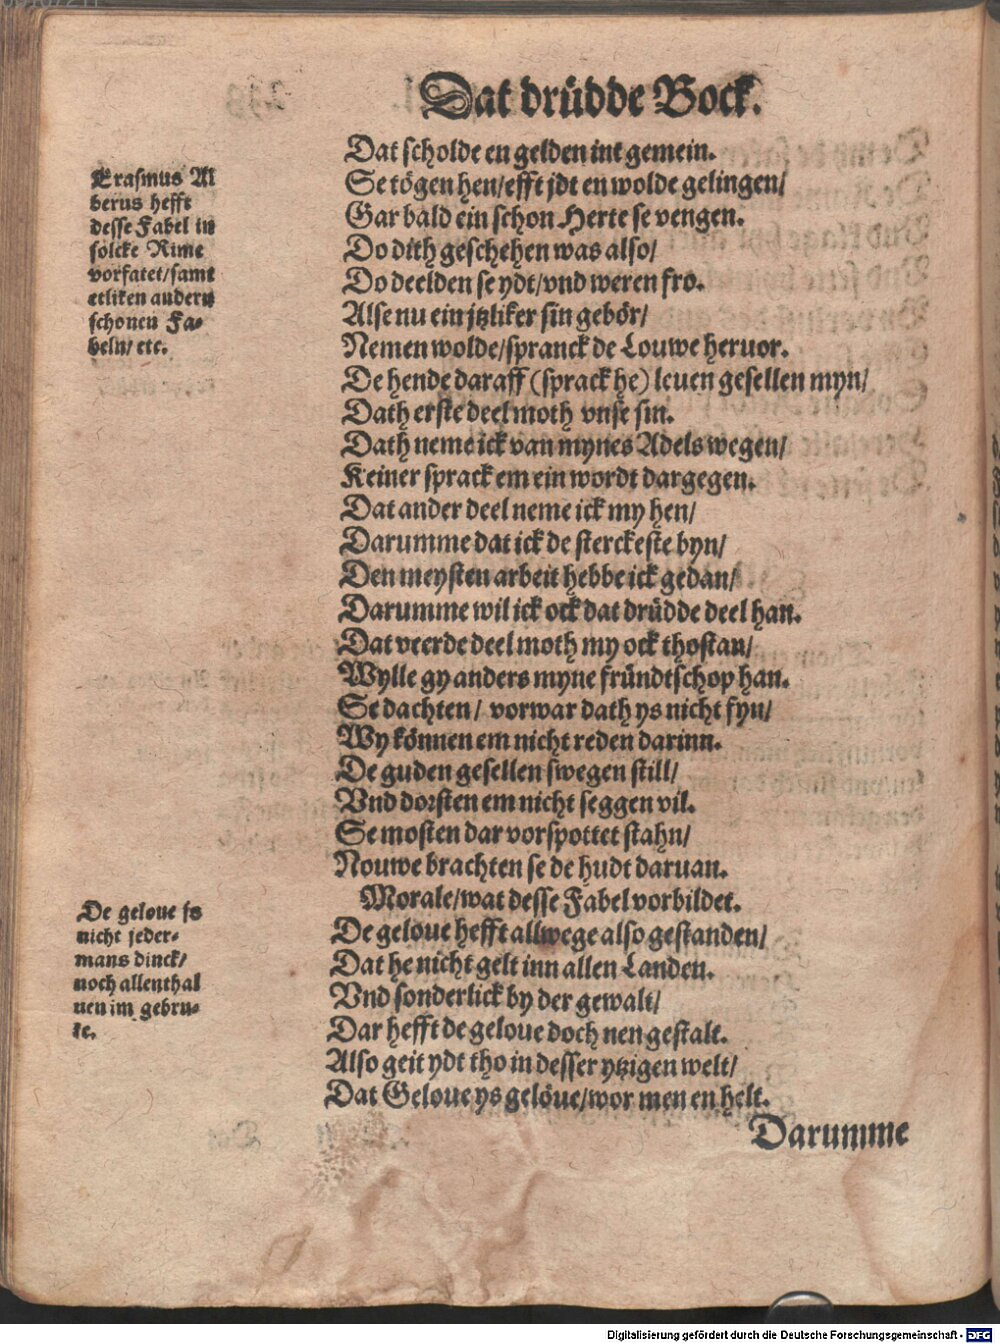 Dat drüdde Bock.
Dat scholde en gelden int gemein.
Se tögen hen/efft jdt en wolde gelingen/
Gar bald ein schon Herte se vengen.
Do dith geschehen was also/
Do deelden se ydt/vnd weren fro.
Alse nu ein jtzliker sin gebör/
Nemen wolde/spranck de Louwe heruor.
De hende daraff (sprack he) leuen gesellen myn/
Dath erste deel moth vnse sin.
Dath neme ick van mynes Adels wegen/
Keiner sprack em ein wordt dargegen.
Dat ander deel neme ick my hen/
Darumme dat ick de sterckeste byn/
Den meysten arbeit hebbe ick gedan/
Darumme wil ick ock dat drüdde deel han.
Dat veerde deel moth my ock thostan/
Wylle gy anders myne fründtschop han.
Se dachten/ vorwar dath ys nicht fyn/
Wy können em nicht reden darinn.
De guden gesellen swegen still/
Vnd dorsten em nicht seggen vil.
Se mosten dar vorspottet stahn/
Nouwe brachten se de hudt daruan.
Morale/wat desse Fabel vorbildet.
De geloue hefft allwege also gestanden/
Dat he nicht gelt inn allen Landen.
Vnd sonderlick by der gewalt/
Dar hefft de geloue doch nen gestalt.
Also geit ydt tho in desser ytzigen welt/
Dat Geloue ys gelöue/wor men en helt.
Darumme
Erasmus Al
berus hefft
desse Fabel in
solcke Rime
vorfatet/samt
etliken andern
schonen Fa-
beln/ etc.
De geloue js
nicht jeder-
mans dinck/
noch allenthal
uen im gebru-
ke.
Digitalisierung gefördert durch die Deutsche Forschungsgemeinschaft - DFG